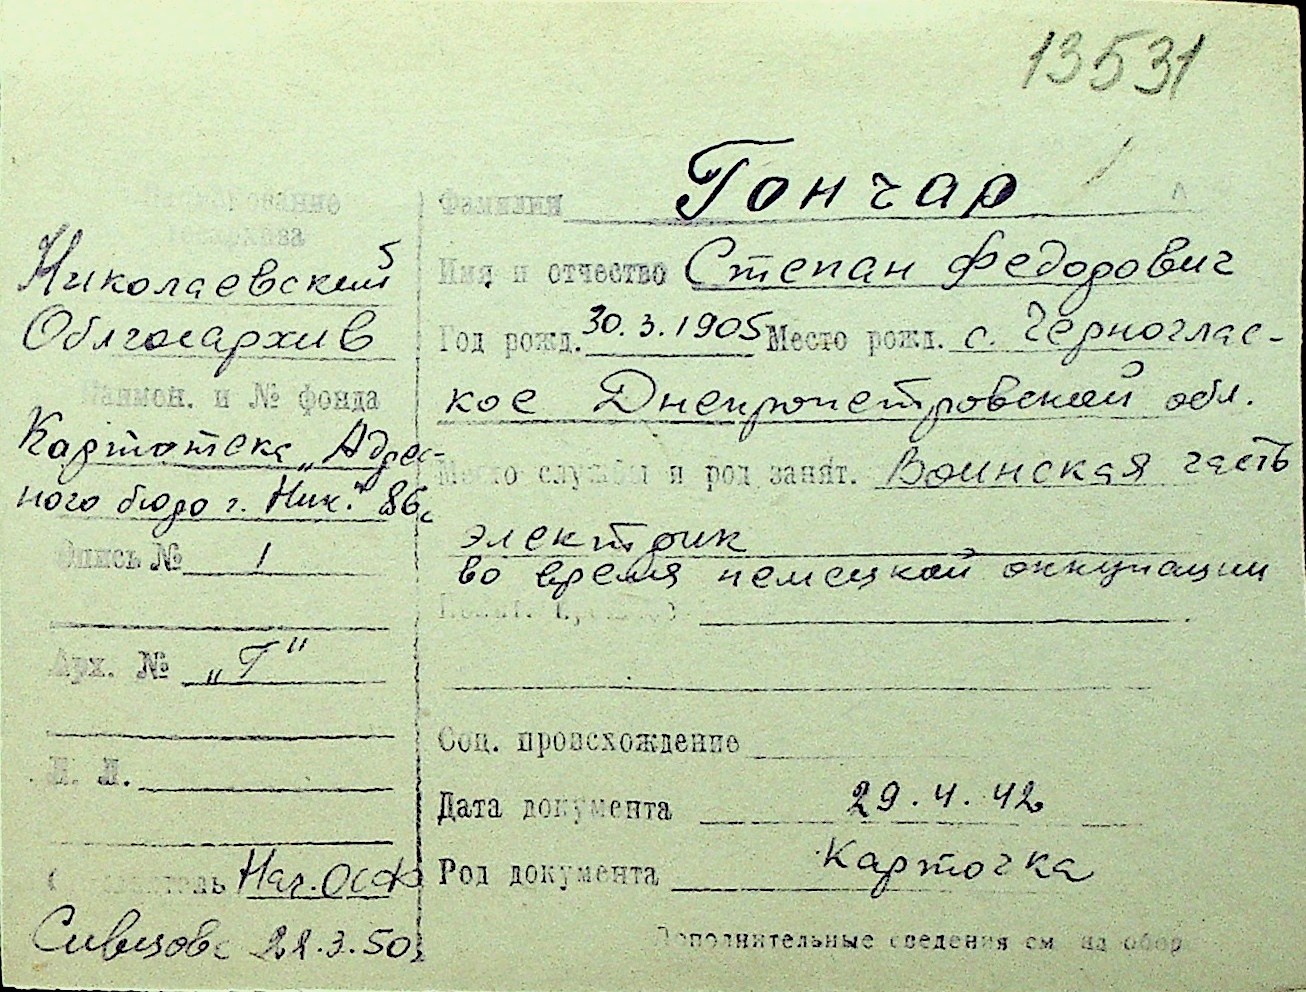 13531
Наименование
госархива
Николаевский
Облгосархив
Наимен. и № фонда
Картотека „Адрес-
ного бюро г. Ник." 86.
Опись № 1
Арх. № „Г"
Л. Л.
Нач. ОСФ
22.3.50
Фамилия Гончар
Имя и отчество Степан Федорович
Год рожд. 30.3.1905 Место рожд. с. Черноглас-
кое Днепропетровской обл.
Место службы и род занят. Воинская часть
электрик
во время немецкой оккупации
Соц. происхождение
Дата документа 29.4.42
Род документа Карточка
Дополнительные сведения см. на обор